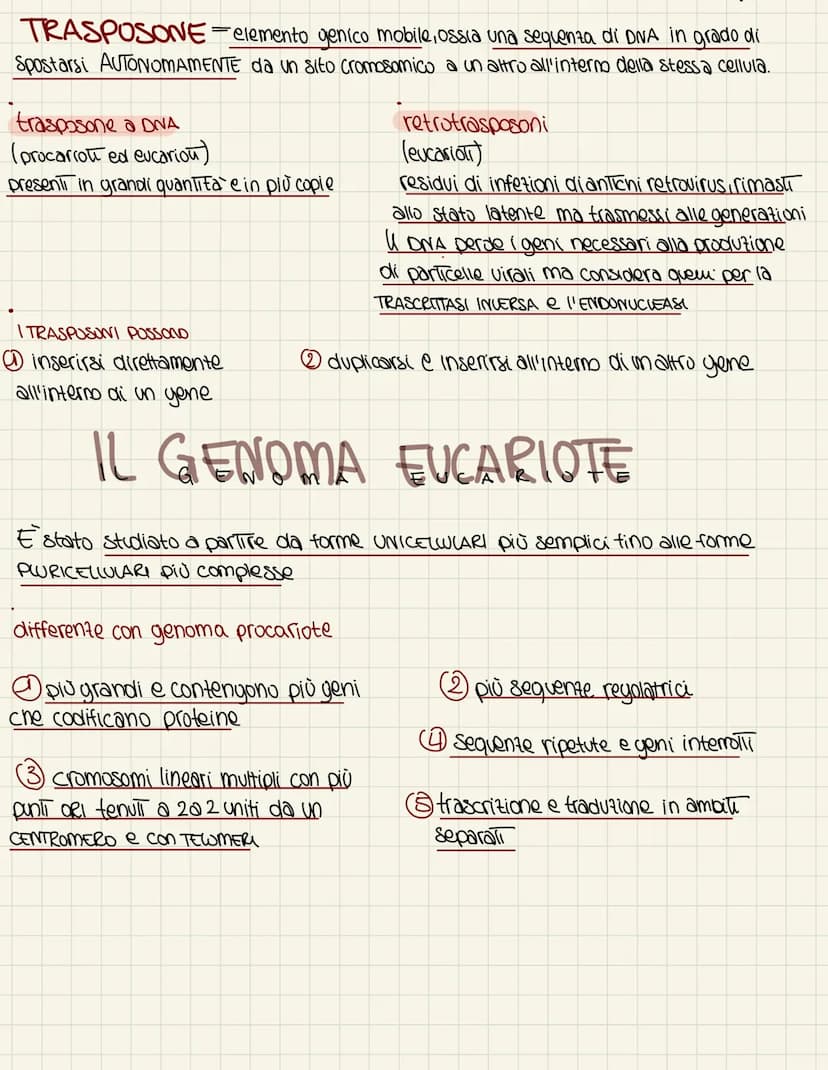 TRASPOSONE = elemento genico mobile, ossia una sequenza di DNA in grado di
spostarsi AUTONOMAMENTE da un sito cromosomico a un altro all'interno della stessa cellula.
trasposone a DNA
(procarioti ed eucarioti)
presenti in grandi quantità e in più copie
retrotrasposoni
(eucarioti)
residui di infezioni di antichi retrovirus, rimasti
allo stato latente ma trasmessi alle generazioni
Il DNA perde i geni necessari alla produzione
di particelle virali ma considera quelli per la
TRASCRITTASI INVERSA e l'ENDONUCLEASI
I TRASPOSONI POSSONO
① inserirsi direttamente
all'interno di un gene
② duplicarsi e inserirsi all'interno di un altro gene
IL GENOMA EUCARIOTE
È stato studiato a partire da forme UNICELLULARI più semplici fino alle forme
PLURICELLULARI più complesse
differenze con genoma procariote
① più grandi e contengono più geni
che codificano proteine
② più sequenze regolatrici
③ cromosomi lineari multipli con più
punti ORI tenuti a 2 a 2 uniti da un
CENTROMERO e con TELOMERI
④ sequenze ripetute e geni interrotti
⑤ trascrizione e traduzione in ambiti
separati